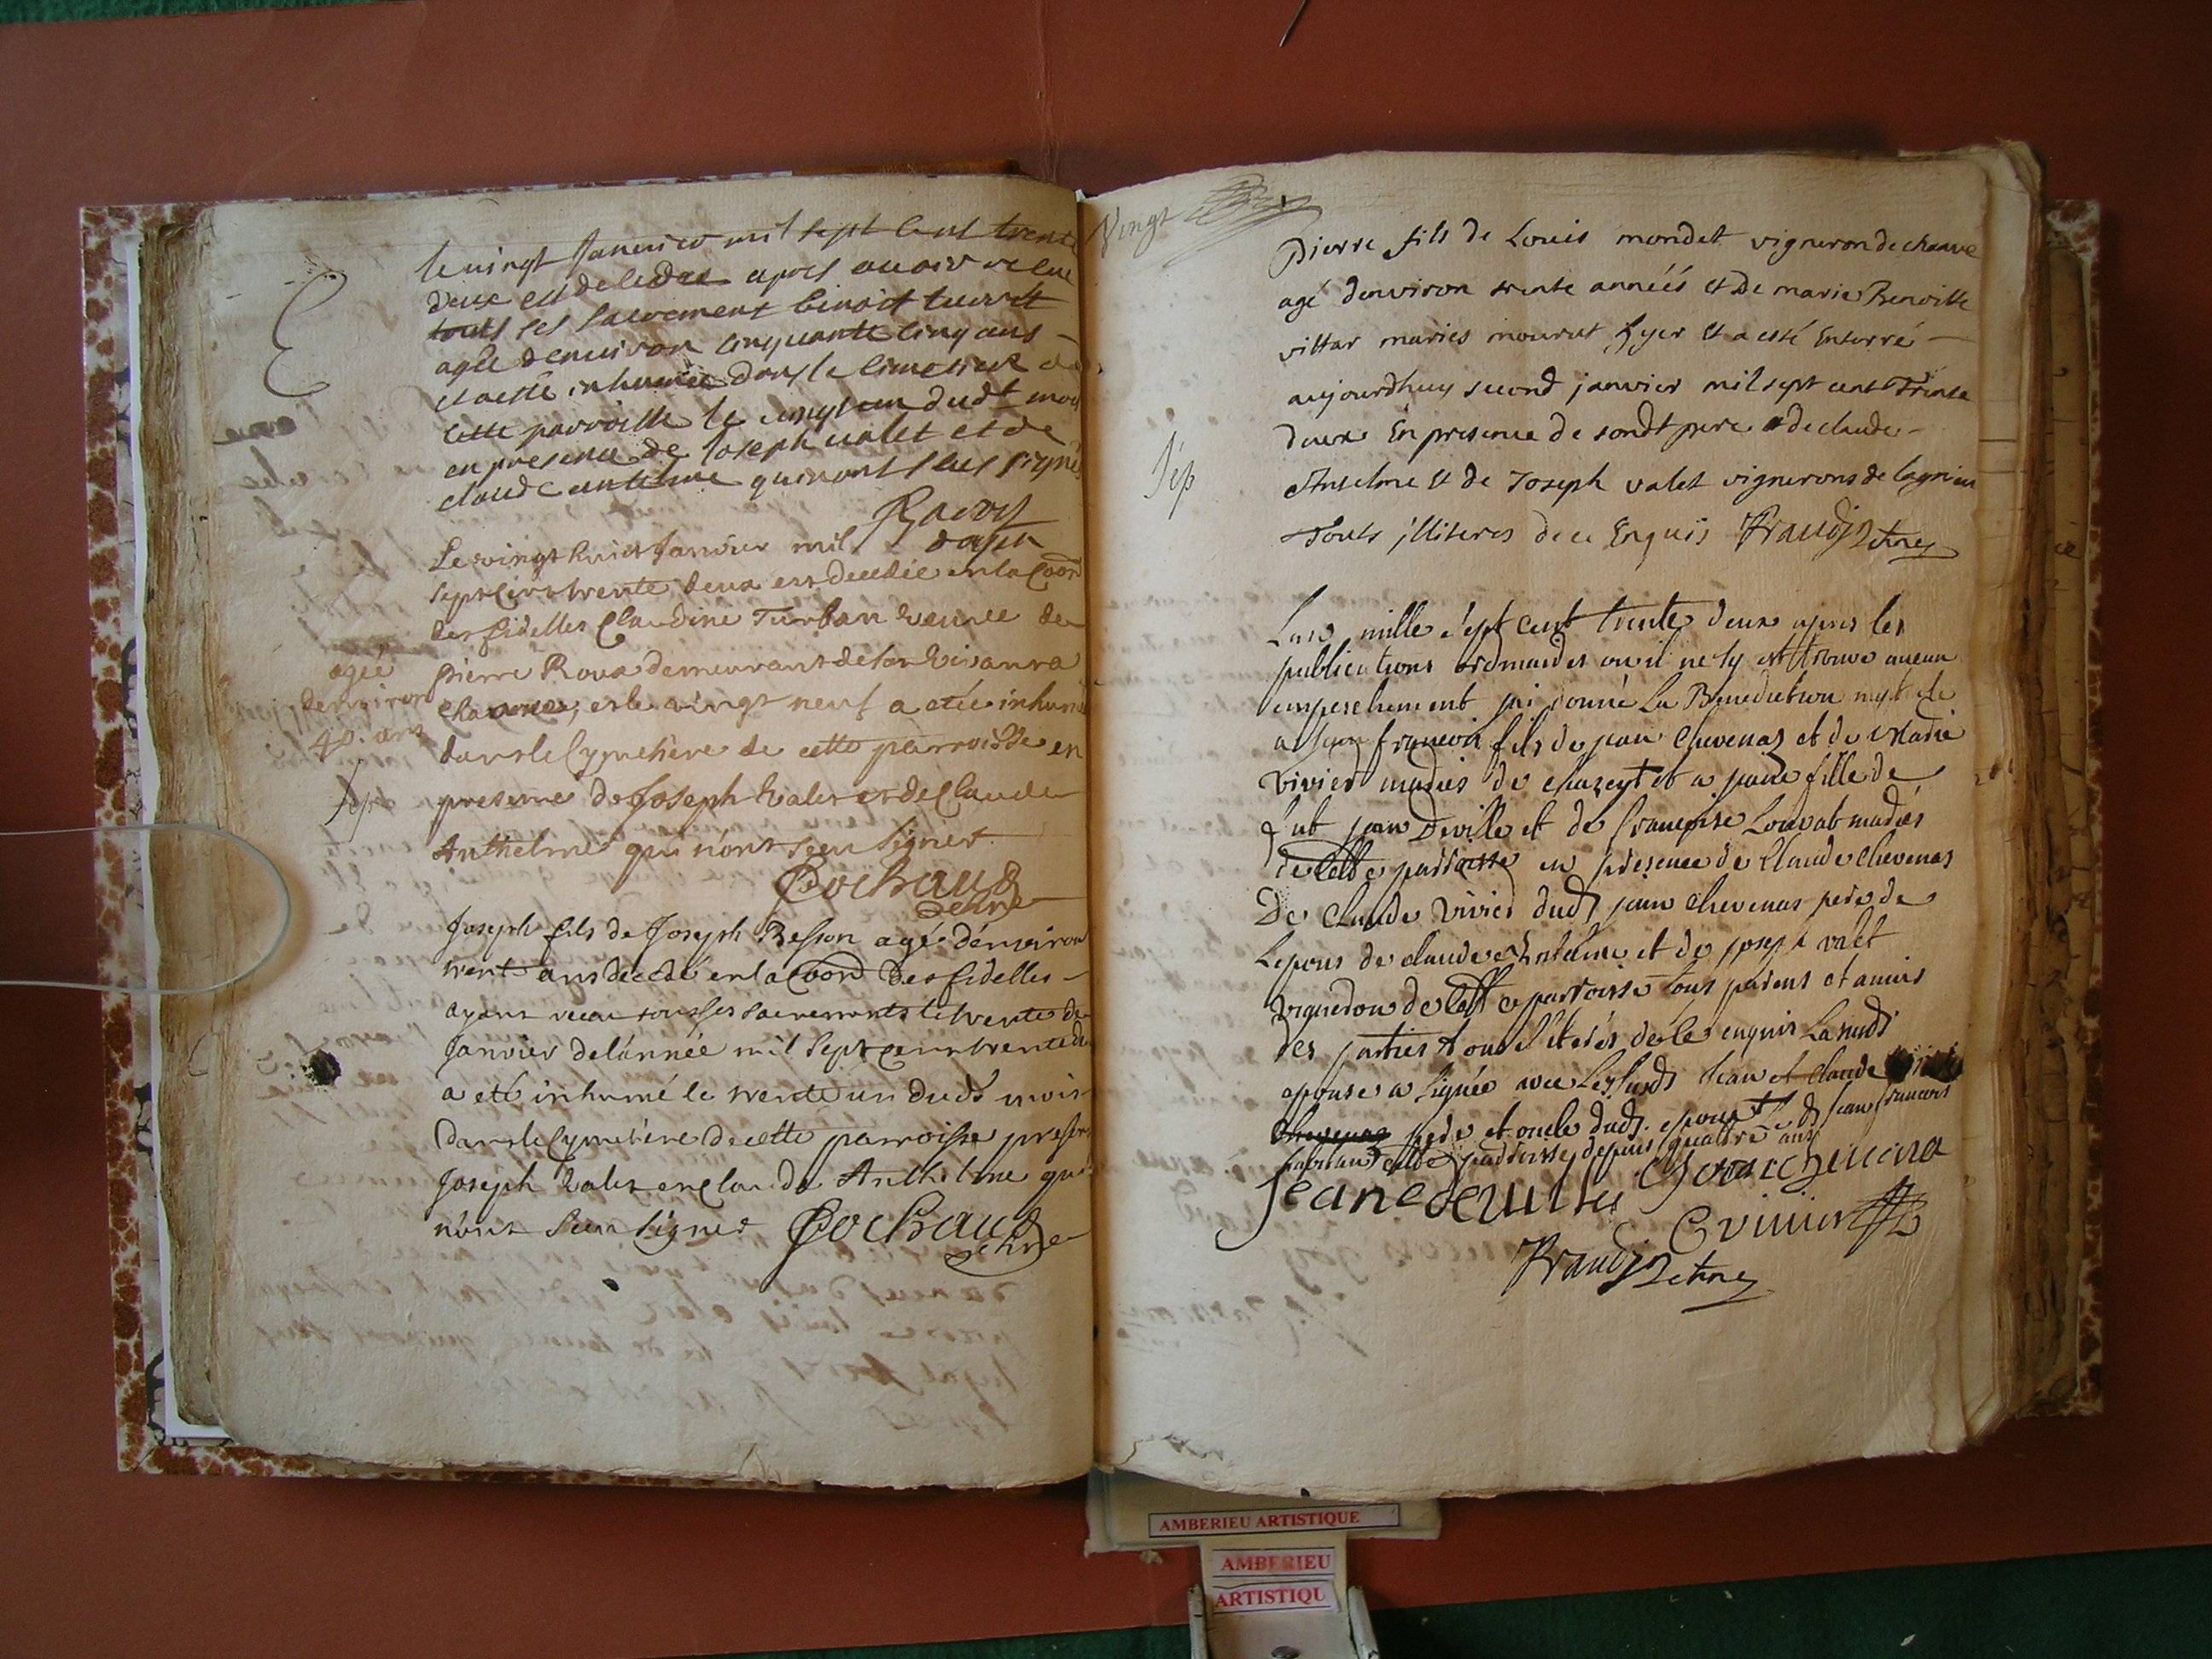 le vingt Januier mil sept cent trente
deux est decedee apres auoir recue
touts ses sacrement benoit
agée denuiron cinquante cinq ans
et a esté inhumée dans le cimetiere de
cette parroisse le vingt un dudt mois
en presence de Joseph ualet et de
claude antelme qui nont sceu signé
Le vingt huict Janvier mil
sept cent trente deux est decedée en la Coon
des fidelles Claudine Turban veuve de
agée
pierre Roux demeurant de son vivant a
denviron
chaxxx, et le vingt neuf a etée inhumé
40. ans
dans le Cymetière de cette parroisse en
sep
presence de Joseph Valet et de Claude
Anthelme qui n'ont sceu signer
Cochaud
Joseph fils de Joseph Besson agé d'environ
trent ans decedé en la Coon des fidelles
ayant recu tous ses sacrements le trente de
Janvier de l'année mil sept cent trente de
a eté inhumé le trente un dudt mois
dans le Cymetière de cette parroisse presents
Joseph Valet et Claude Anthelme qui
n'ont sceu signer Cochaud
Vingt
Pierre fils de Louis mondet vigneron de
agé denviron trente années et De marie
villar mariés mourut hyer et a esté Enterré
aujourdhuy second janvier mil sept cent Trente
deux En presence de sondt pere et de claude
sep
Anselme et de Joseph valet vignerons de lagnieu
touts illiteres de ce Enquis
Lan mille sept cent trente deux apres les
publications ordonnées ou il ne sy est trouvé aucun
empeschement jai donné La Benediction nupt ale
a jean francois fils de jean chevenas et de Marie
Vivier mariés de chazeyt et a jeane fille de
fut jean Deville et de francoise Louvat mariés
de cette parroisse en presence de Claude chevenas
De Claude Vivier dudt jean chevenas pere de
Lepous de claude Antelme et de joseph valet
vigneron de cette parroisse tous parens et amis
Des parties tous illiterés de ce enquis La susdt
epouse a signée avec Les susdt Jean et Claude
chevenas pere et oncle dudt. epoux ledt jean francois
habitant cette parroisse depuis quattre ans
jeane deville
C vivier
AMBERIEU ARTISTIQUE
AMBERIEU
ARTISTIQU